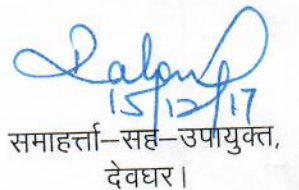 15/12/17
समाहर्त्ता–सह–उपायुक्त,
देवघर।